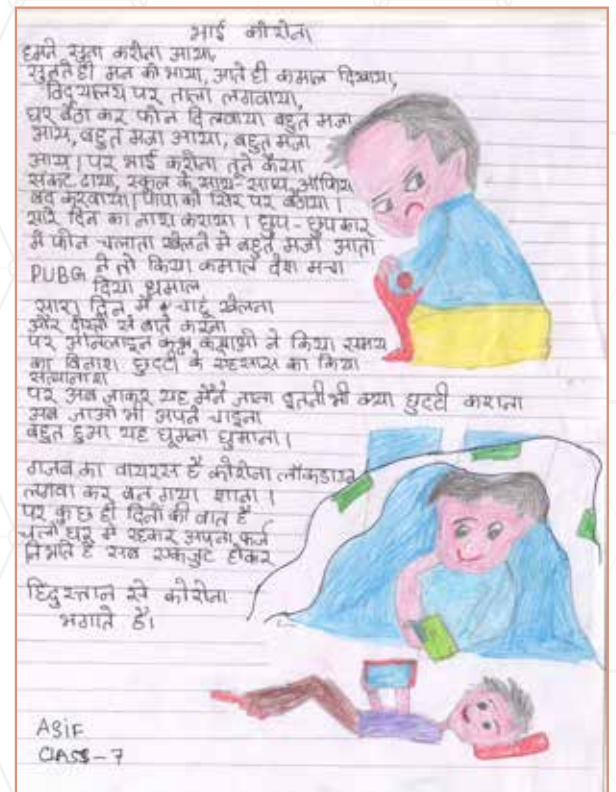 भाई कोरोना
हमने सुना करोना आया,
सुनते ही मन को भाया, आते ही कमाल दिखाया,
विद्यालय पर ताला लगवाया,
घर बैठा कर फोन दिलवाया बहुत मजा
आय, बहुत मजा आया, बहुत मजा
आय। पर भाई करोना तूने कैसा
संकट ढाया, स्कूल के साथ-साथ, ऑफिस
बंद करवाया। पापा को सिर पर बैठाया।
सारे दिन का नाश कराया। छुप-छुपकार
में फोन चलाता खेलने में बहुत मजा आता
PUBG ने तो किया कमाल देश मचा
दिया धमाल
सारा दिन में चाहूं खेलना
और दोस्तों से बातें करना
पर ऑनलाइन कक्षाओं ने किया समय
का विनाश छुट्टी के एहसास का किया
सत्यानाश
पर अब जाकर यह मैंने जाना इतनी भी क्या छुट्टी कराना
अब जाओ भी अपने चाइना
बहुत हुआ यह घूमना घुमाना।
गजब का वायरस है कोरोना लॉकडाउन
लगवा कर बन गया शाना।
पर कुछ ही दिनों की बात है
चलो घर में रहकर अपना फर्ज
निभाते है सब एकजुट होकर
हिंदुस्तान से कोरोना
भगाते है।
ASIF
CLASS-7